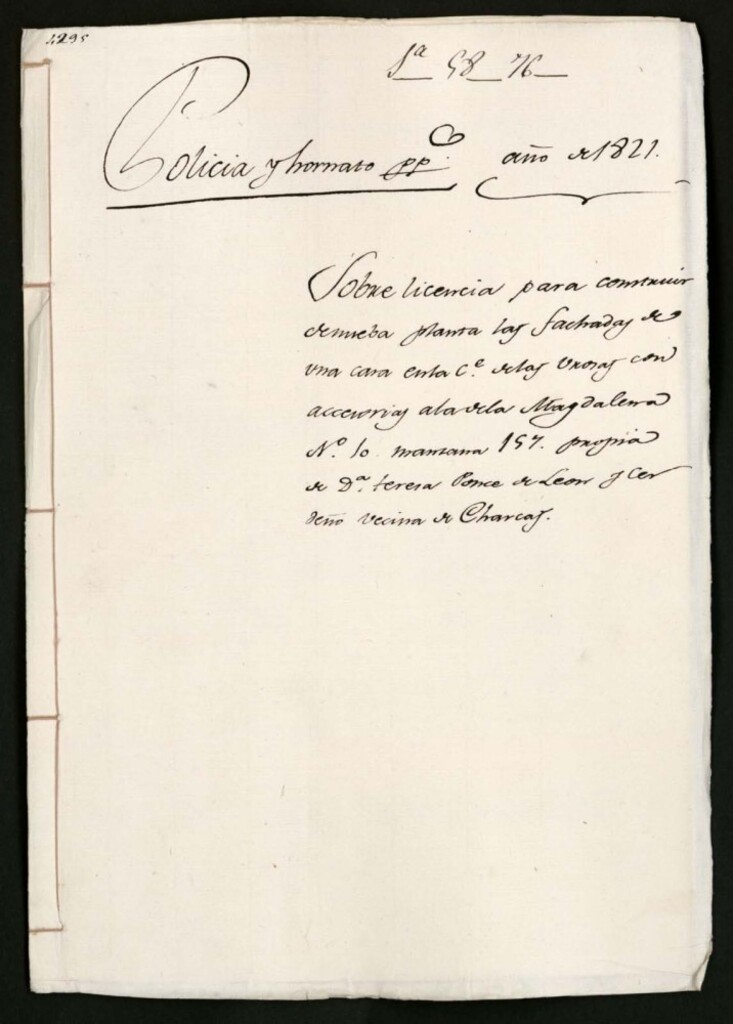 1295
1ª 58 76
Policia y hornato pp.co año de 1821.
Sobre licencia para construir
de nueba planta las fachadas de
una casa en la C.e de las Urosas con
accesorias a la de la Magdalena
N.o 10 manzana 157. propia
de D.ª teresa Ponce de Leon y Cer
deño vecina de Charcas.